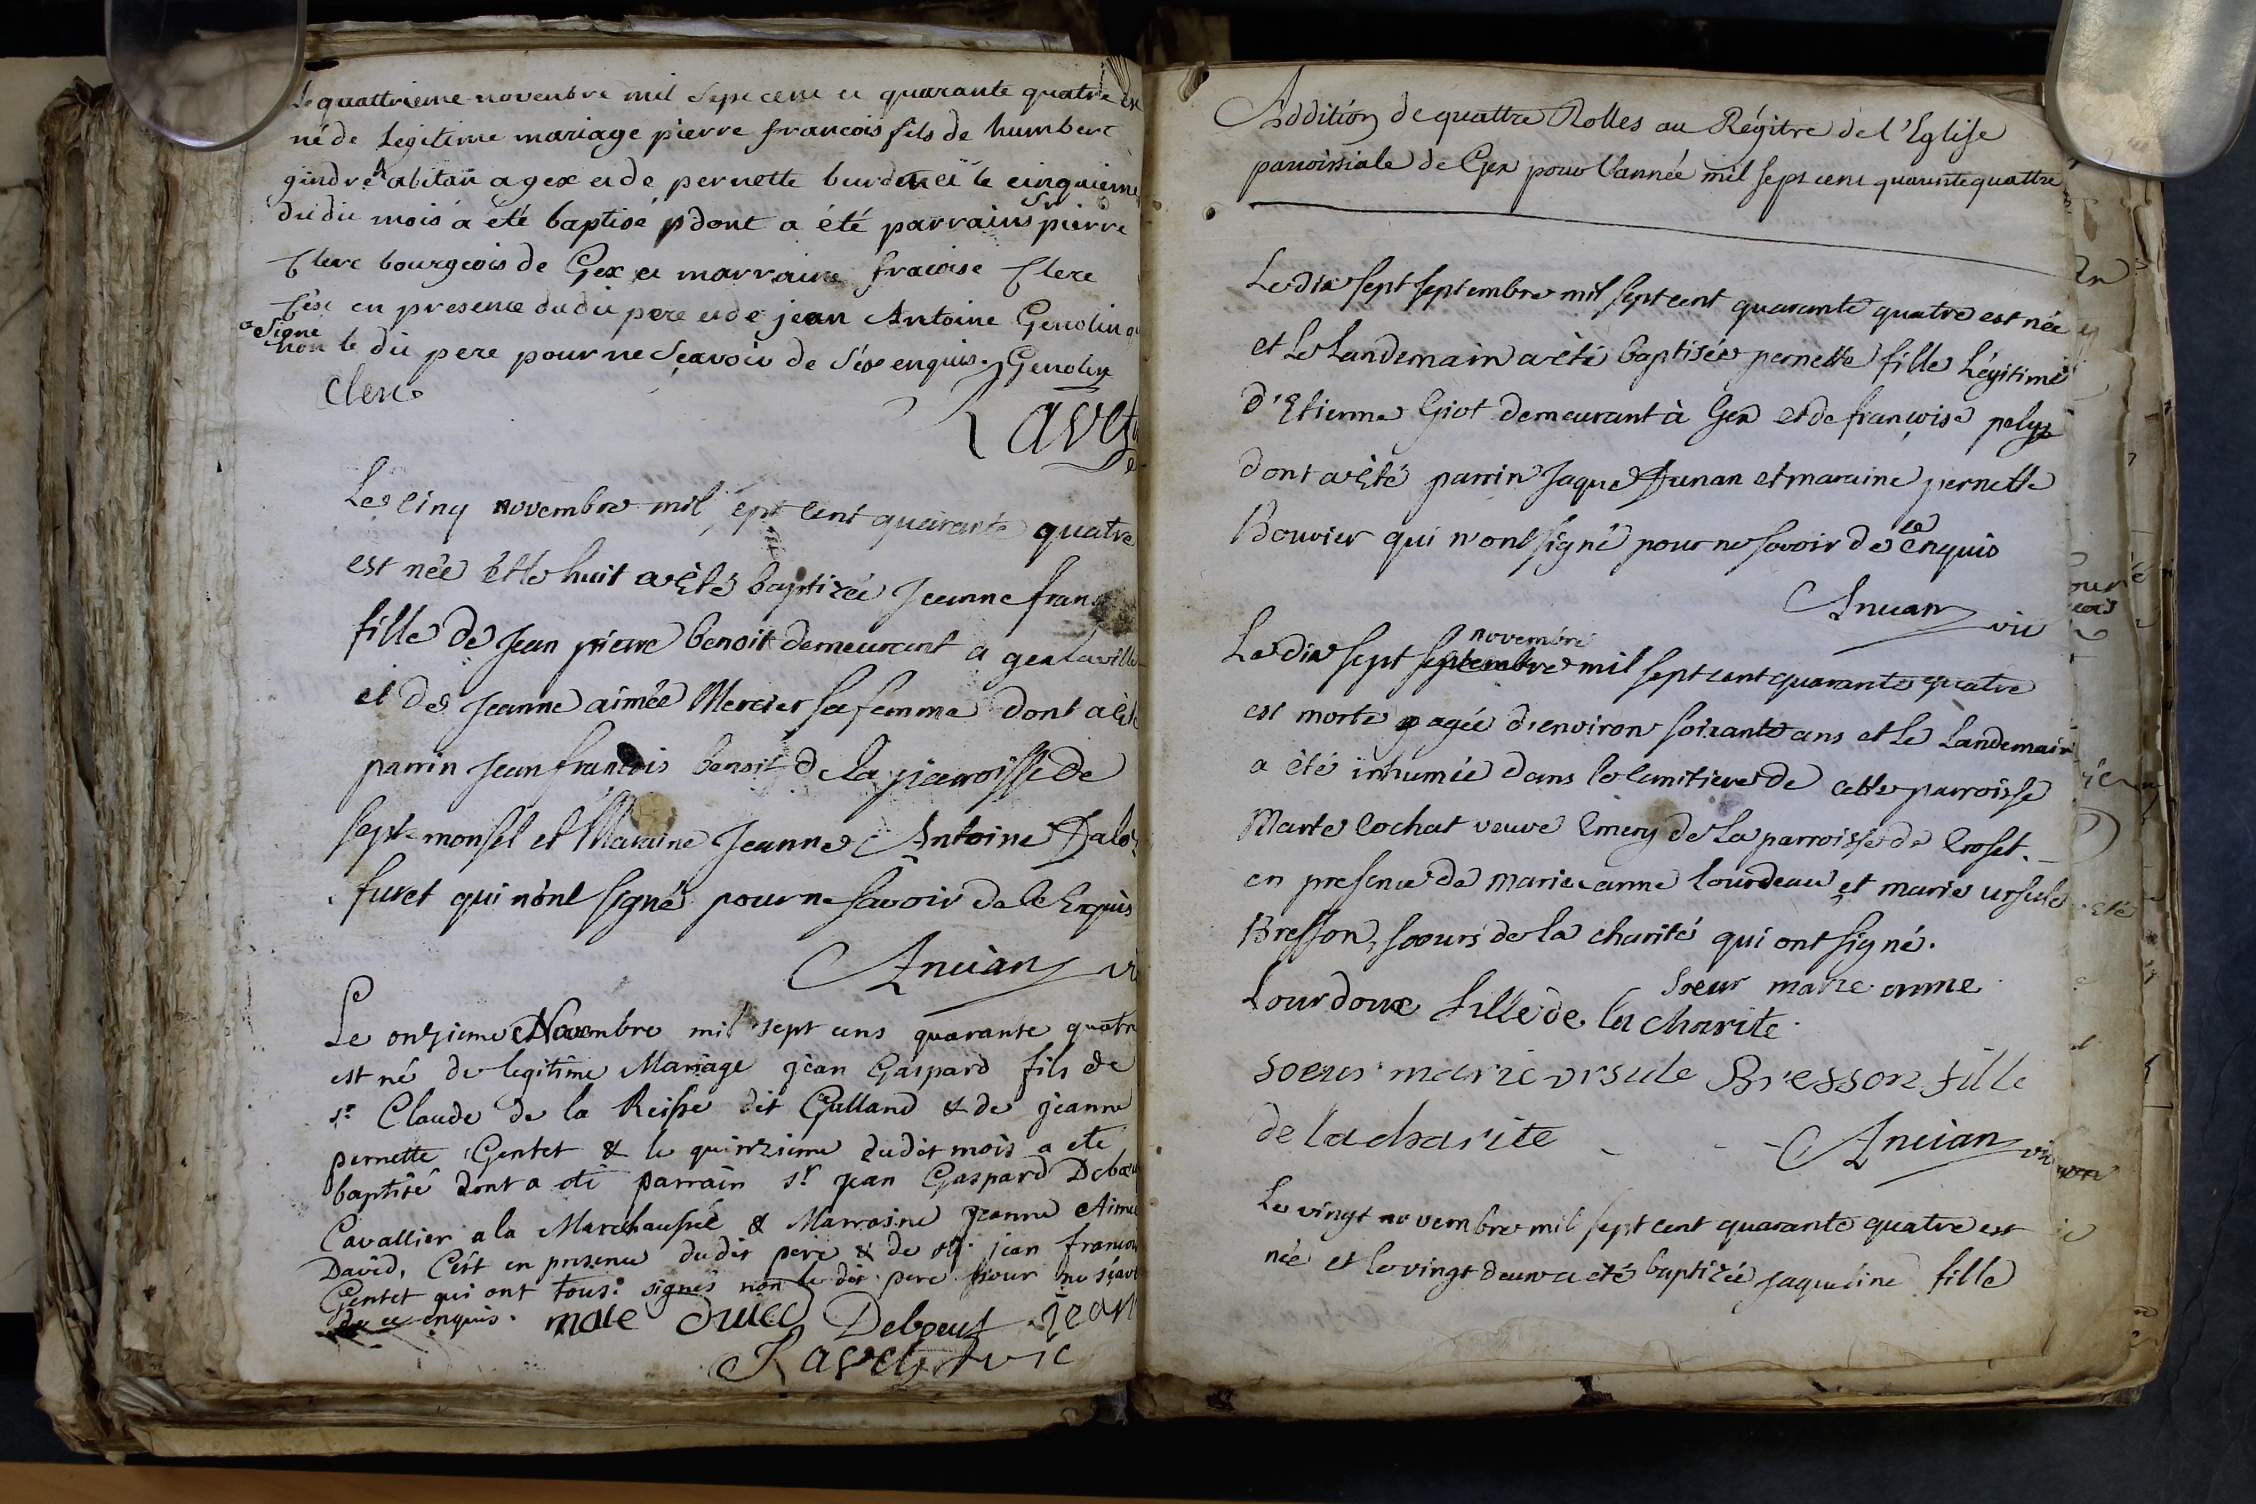 Le quattrieme novembre mil sept cent et quarante quatre est
né de legitime mariage pierre francois fils de humbert
gindre habitan a gex et de pernette burdet et le cinquieme
du dit mois a eté baptisé dont a été parrains Sr pierre
Clerc bourgeois de Gex et marraine fracoise Clerc
C'est en presence du dit pere et de jean Antoine Genolin
a signé non le dit pere pour ne sçavoir de s'ée enquis. Genolin
Clerc
Ravet
Le cinq novembre mil sept cent quarante quatre
est née et le huit a eté baptizée Jeanne fran
fille de Jean pierre benoit demeurant a gex la ville
et de Jeanne aimée Mercier sa femme dont a eté
parrin Jean francois benoit de la parroisse de
sept monsel et Maraine Jeanne Antoine Dalo
furet qui n'ont signé pour ne savoir de ce Enquis
Ancian vi
Le onzieme Novembre mil sept cens quarante quatre
est né de legitime Mariage jean Gaspard fils de
sr Claude de la Reisse dit Galland & de jeanne
pernette Gentet & le quinzieme dudit mois a eté
baptisé dont a eté parrain sr jean Gaspard Deboeu
Cavallier a la Marechaussée & Marraine Jeanne Aimée
David, C'est en presence dudit pere & de jean francois
Gentet qui ont tous signés non le dit pere pour ne sçavoir
de ce enquis. Deboeuf jean
Ravet vic
Addition de quattre Rolles au Régitre de l'Eglise
parroissiale de Gex pour l'année mil sept cent quarante quattre
Le dix sept septembre mil sept cent quarante quatre est née
et Le Landemain a été baptisée pernette fille Légitime
d'Etienne Giot demeurant à Gex et de françoise pelys
dont a été parrin Jaque Dunan et maraine pernette
Bouvier qui n'ont signé pour ne savoir de ce enquis
Ancian vic
novembre
Le dix sept septembre mil sept cent quarante quatre
est morte agée d'environ soixante ans et Le Landemain
a été inhumée dans le Cemitiere de cette parroisse
Marte Cochat veuve Emery de La parroisse de Croset.
en presence de marie anne Lourdeau et marie ursule
Bresson, soeurs de la charité qui ont signé.
soeur marie anne
Lourdoux fille de la charite.
soeur marie ursule Bresson fille
de la charite
Ancian vic
Le vingt novembre mil sept cent quarante quatre est
née et le vingt deux a eté baptizée jaqueline fille